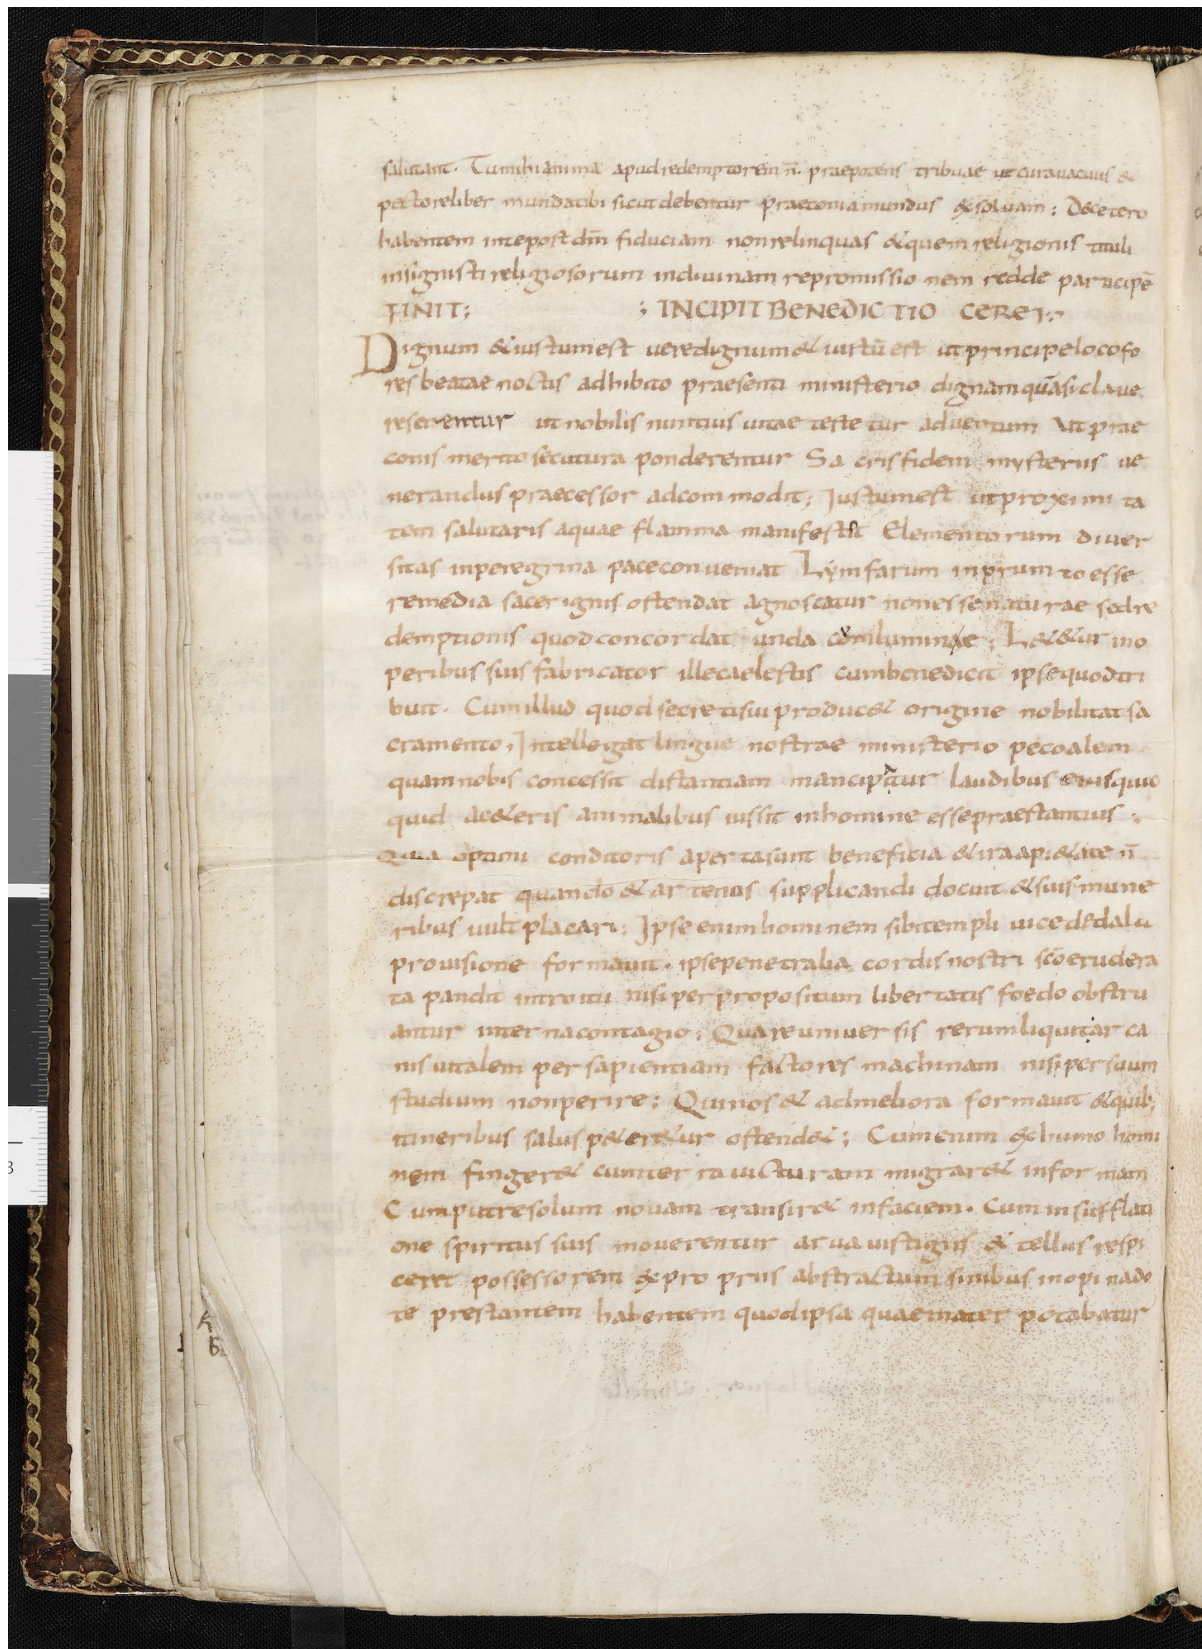 salutant. Tu mihi anima apud redemptorem n̄. praepotens tribuae ut cura vacuus &
pectore liber munda tibi sicut debentur praeconia mundus exsoluam: De cetero
habentem in te post dm̄ fiduciam non relinquas & quem religionis tituli
insignisti religiosorum in divinam repromissionem redde participē
FINIT; : INCIPIT BENEDICTIO CEREI:
Dignum & iustum est vere dignum & iustū est ut principe loco fo
res beatae noctis adhibito praesenti ministerio dignam quasi clave
reserentur ut nobilis nuntius vitae testetur adventum Ut prae
conis merito secutura ponderentur Sacris fidem mysteriis ve
nerandus praecessor adcommodit; Iustum est ut proximita
tem salutaris aquae flamma manifestit Elementorum diver
sitas in peregrina pace conveniat Lymfarum in prumto esse
remedia sacer ignis ostendat agnoscatur non esse naturae sed re
demptionis quod concordat unda cum lumine; L&&ur in o
peribus suis fabricator ille caelestis cum benedicit ipse quod tri
buit. Cum illud quod secretis sui produc& origine nobilitat sa
cramento, Intellegat lingue nostrae ministerio pecoalem
quam nobis concessit distantiam mancipatur laudibus eius quic
quid ac&eris animalibus iussit in homine esse praestantius;
Quia optimi conditoris aperta sunt beneficia & ira a pi&ate n̄
discrepat quando & artenus supplicandi docuit & suis mune
ribus vult placari; Ipse enim hominem sibi templi vice dedalu
provisione formavit. ipse penetralia cordis nostri sc̄o erudera
ta pandit introitu nisi per propositum libertatis foedo obstru
antur interna contagio; Quare universis rerum liquitar ca
nis vitalem per sapientiam factores machinam nisi per suum
studium non perire; Qui nos & ad meliora formavit & quib;
itineribus salus p&er&ur ostend&; Cum enim ex humo homi
nem finger& cuniter ra victuram migrar& in formam
Cum putre solum novam transir& in faciem. Cum insufflati
one spiritus suis moverentur arva vistigiis & tellus respi
ceret possessorem ex propriis abstractum sinibus inopinado
te prestantem habentem quod ipsa quae mater potabatur